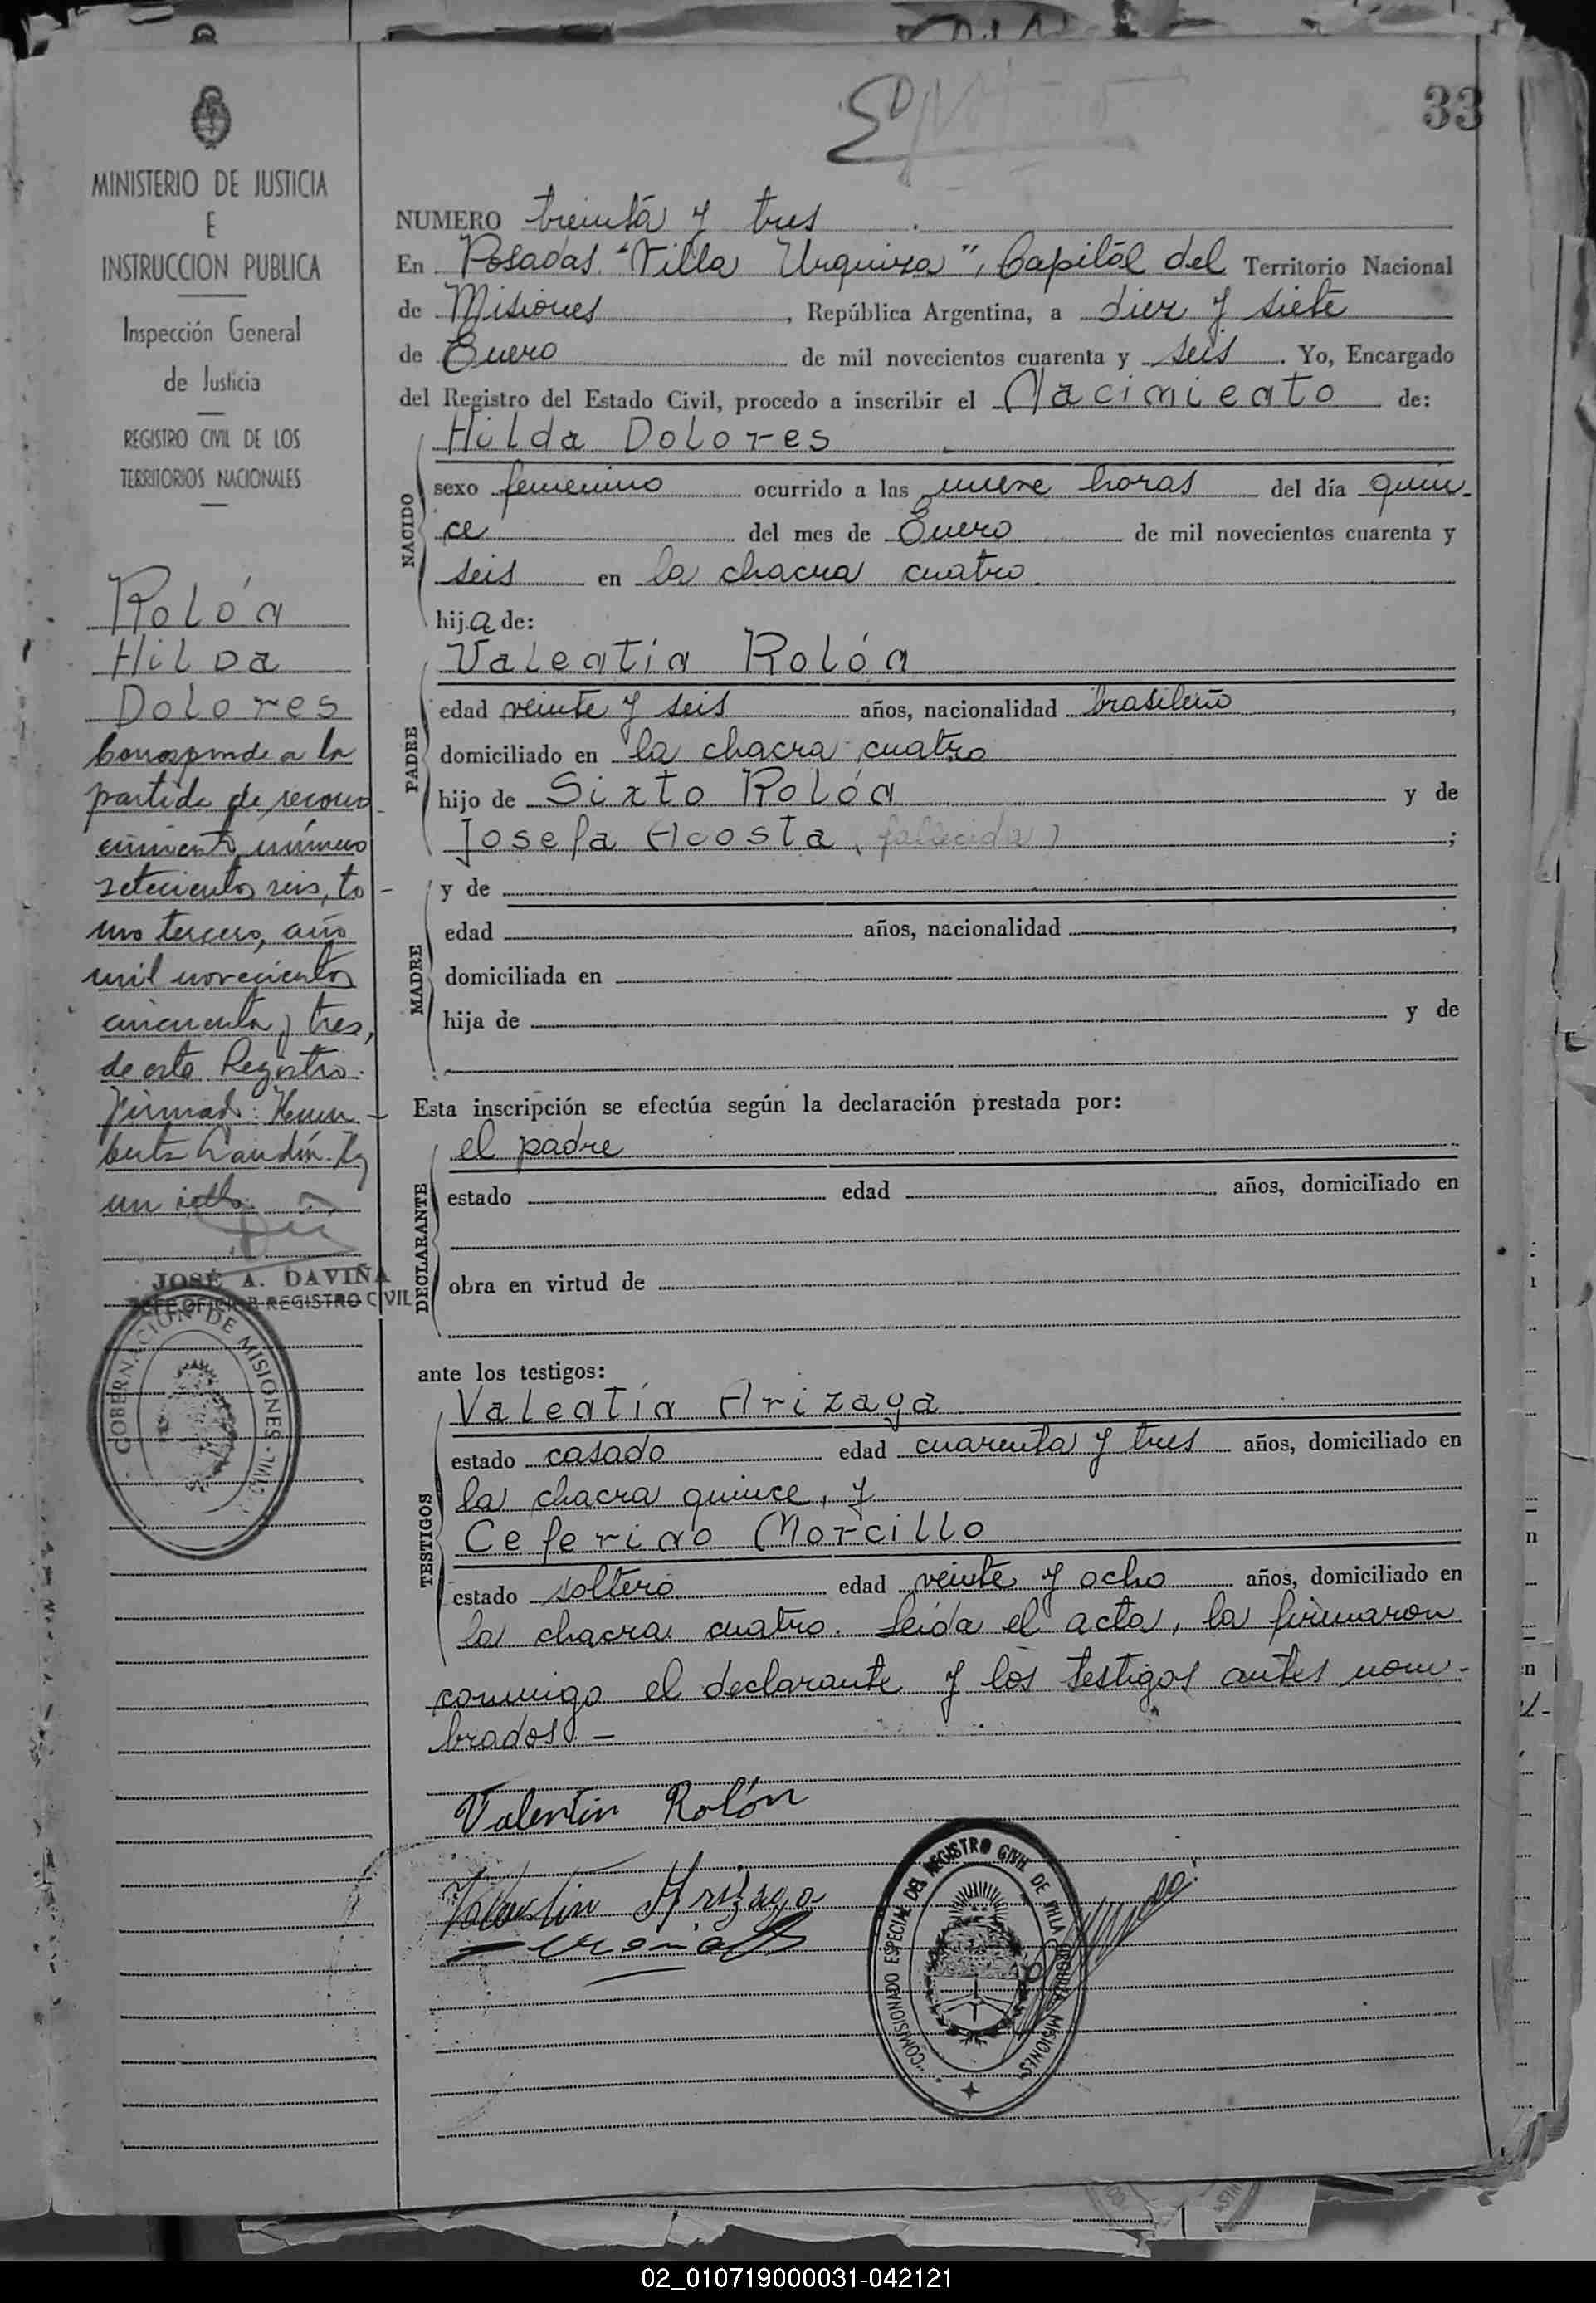 33
MINISTERIO DE JUSTICIA
E
INSTRUCCION PUBLICA
Inspección General
de Justicia
REGISTRO CIVIL DE LOS
TERRITORIOS NACIONALES
Rolón
Hilda
Dolores
Corresponde a la
partida de recono-
cimiento número
setecientos seis, to-
mo tercero, año
mil novecientos
cincuenta y tres,
de este Registro.
Firmado: Hum-
berto Landín. Hay
un sello.
JOSÉ A. DAVIÑA
JEFE OFICINA REGISTRO CIVIL
GOBERNACIÓN DE MISIONES
NUMERO treinta y tres
En Posadas "Villa Urquiza", Capital del Territorio Nacional
de Misiones, República Argentina, a diez y siete
de Enero de mil novecientos cuarenta y seis. Yo, Encargado
del Registro del Estado Civil, procedo a inscribir el Nacimiento de:
NACIDO
Hilda Dolores
sexo femenino ocurrido a las nueve horas del día quin-
ce del mes de Enero de mil novecientos cuarenta y
seis en la chacra cuatro.
hija de:
PADRE
Valentín Rolón
edad veinte y seis años, nacionalidad brasileño,
domiciliado en la chacra cuatro
hijo de Sixto Rolón y de
Josefa Acosta (fallecida);
MADRE
y de
edad años, nacionalidad,
domiciliada en
hija de y de
Esta inscripción se efectúa según la declaración prestada por:
DECLARANTE
el padre
estado edad años, domiciliado en
obra en virtud de
ante los testigos:
TESTIGOS
Valentín Arizaga
estado casado edad cuarenta y tres años, domiciliado en
la chacra quince, y
Ceferino Morcillo
estado soltero edad veinte y ocho años, domiciliado en
la chacra cuatro. Leída el acta, la firmaron
conmigo el declarante y los testigos antes nom-
brados.—
Valentin Rolón
Valentin Arizaga
"COMISIONADO ESPECIAL DEL REGISTRO CIVIL DE VILLA URQUIZA MISIONES"
02_010719000031-042121